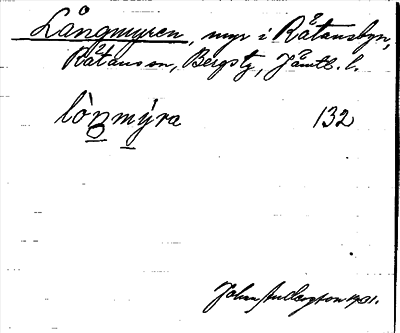 Långmyren, myr i Råtansbyn,
Råtans sn, Bergs tg, Jämtl. l.
lòŋmýra 132
John Anderson 1931.